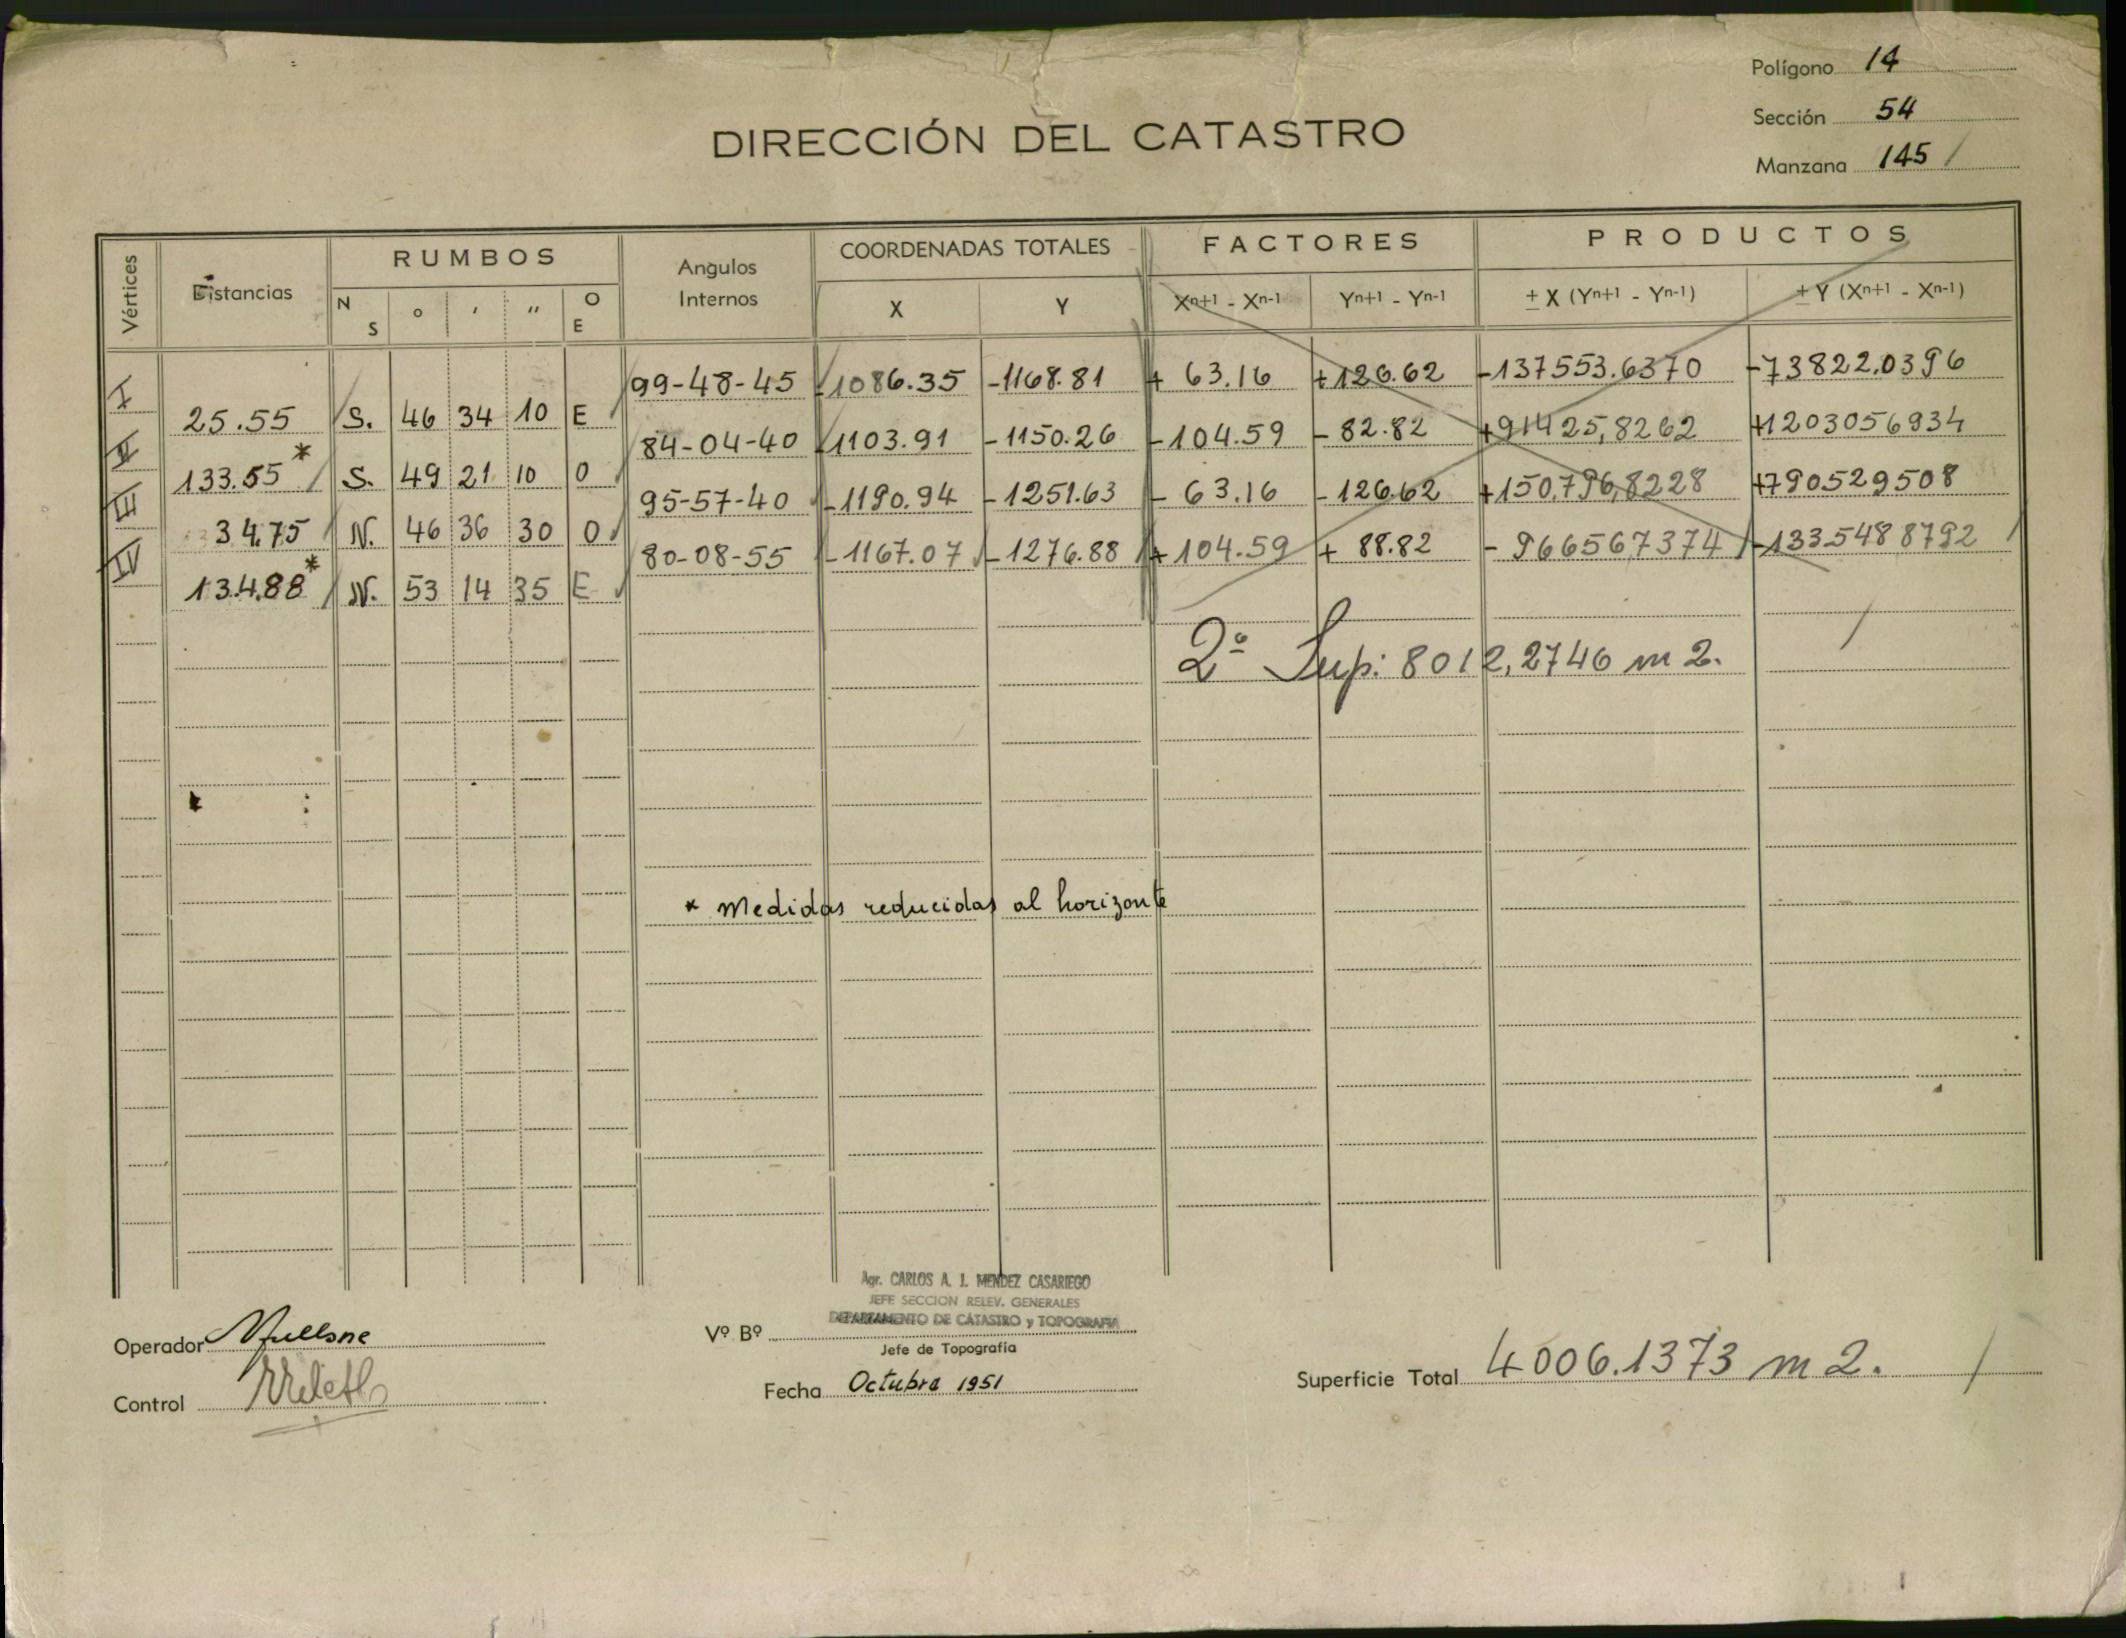 Polígono 14
Sección 54
Manzana 145 /
DIRECCIÓN DEL CATASTRO
Vértices Distancias RUMBOS Angulos Internos COORDENADAS TOTALES FACTORES PRODUCTOS
N S ° ' '' O E X Y Xn+1 - Xn-1 Yn+1 - Yn-1 ± X (Yn+1 - Yn-1) ± Y (Xn+1 - Xn-1)
I 99-48-45 -1086.35 -1168.81 + 63.16 +126.62 -137553.6370 -73822,0396
25.55 S. 46 34 10 E
II 84-04-40 -1103.91 -1150.26 -104.59 - 82.82 +91425,8262 +1203056934
133.55* S. 49 21 10 O
III 95-57-40 -1190.94 -1251.63 - 63.16 -126.62 +150,796,8228 +790529508
34.75 N. 46 36 30 O
IV 80-08-55 -1167.07 -1276.88 +104.59 + 88.82 - 966567374 -1335488792
134.88* N. 53 14 35 E
2º Sup: 8012,2746 m 2.
* Medidas reducidas al horizonte
Agr. CARLOS A. J. MENDEZ CASARIEGO
JEFE SECCION RELEV. GENERALES
DEPARTAMENTO DE CATASTRO y TOPOGRAFIA
Operador
Vº Bº
Jefe de Topografía
Control
Fecha Octubre 1951
Superficie Total 4006.1373 m 2. /